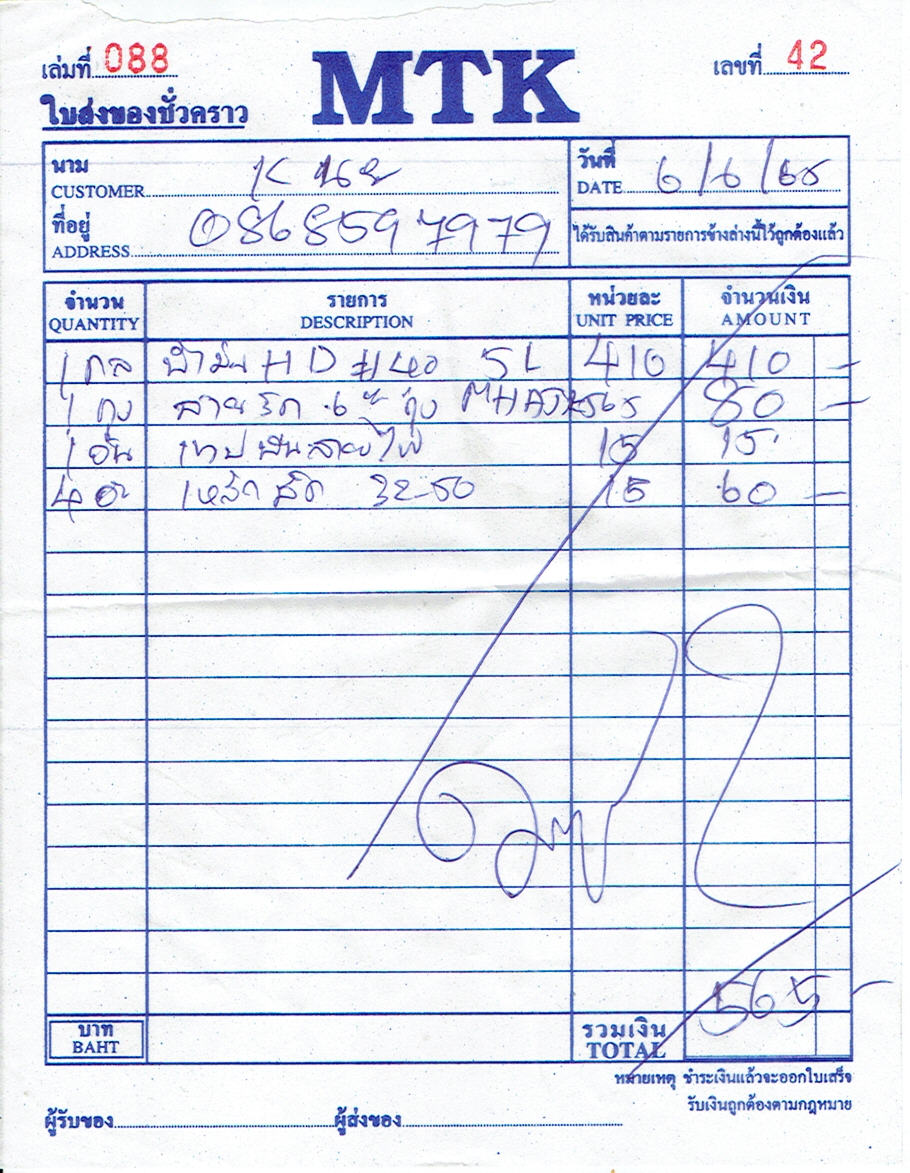 เล่มที่ 088
MTK
เลขที่ 42
ใบส่งของชั่วคราว
นาม
CUSTOMER K
วันที่
DATE 6/6/65
ที่อยู่
ADDRESS 0868597979
ได้รับสินค้าตามรายการข้างล่างนี้ไว้ถูกต้องแล้ว
จำนวน รายการ หน่วยละ จำนวนเงิน
QUANTITY DESCRIPTION UNIT PRICE AMOUNT
1 กล น้ำมัน HD #40 5L 410 410 -
1 ถุง สายรัด 6" 80 -
1 อัน เทปพันสายไฟ 15 15
4 เหล็กรัด 32-50 15 60 -
565 -
บาท รวมเงิน
BAHT TOTAL
หมายเหตุ ชำระเงินแล้วจะออกใบเสร็จ
รับเงินถูกต้องตามกฎหมาย
ผู้รับของ ผู้ส่งของ